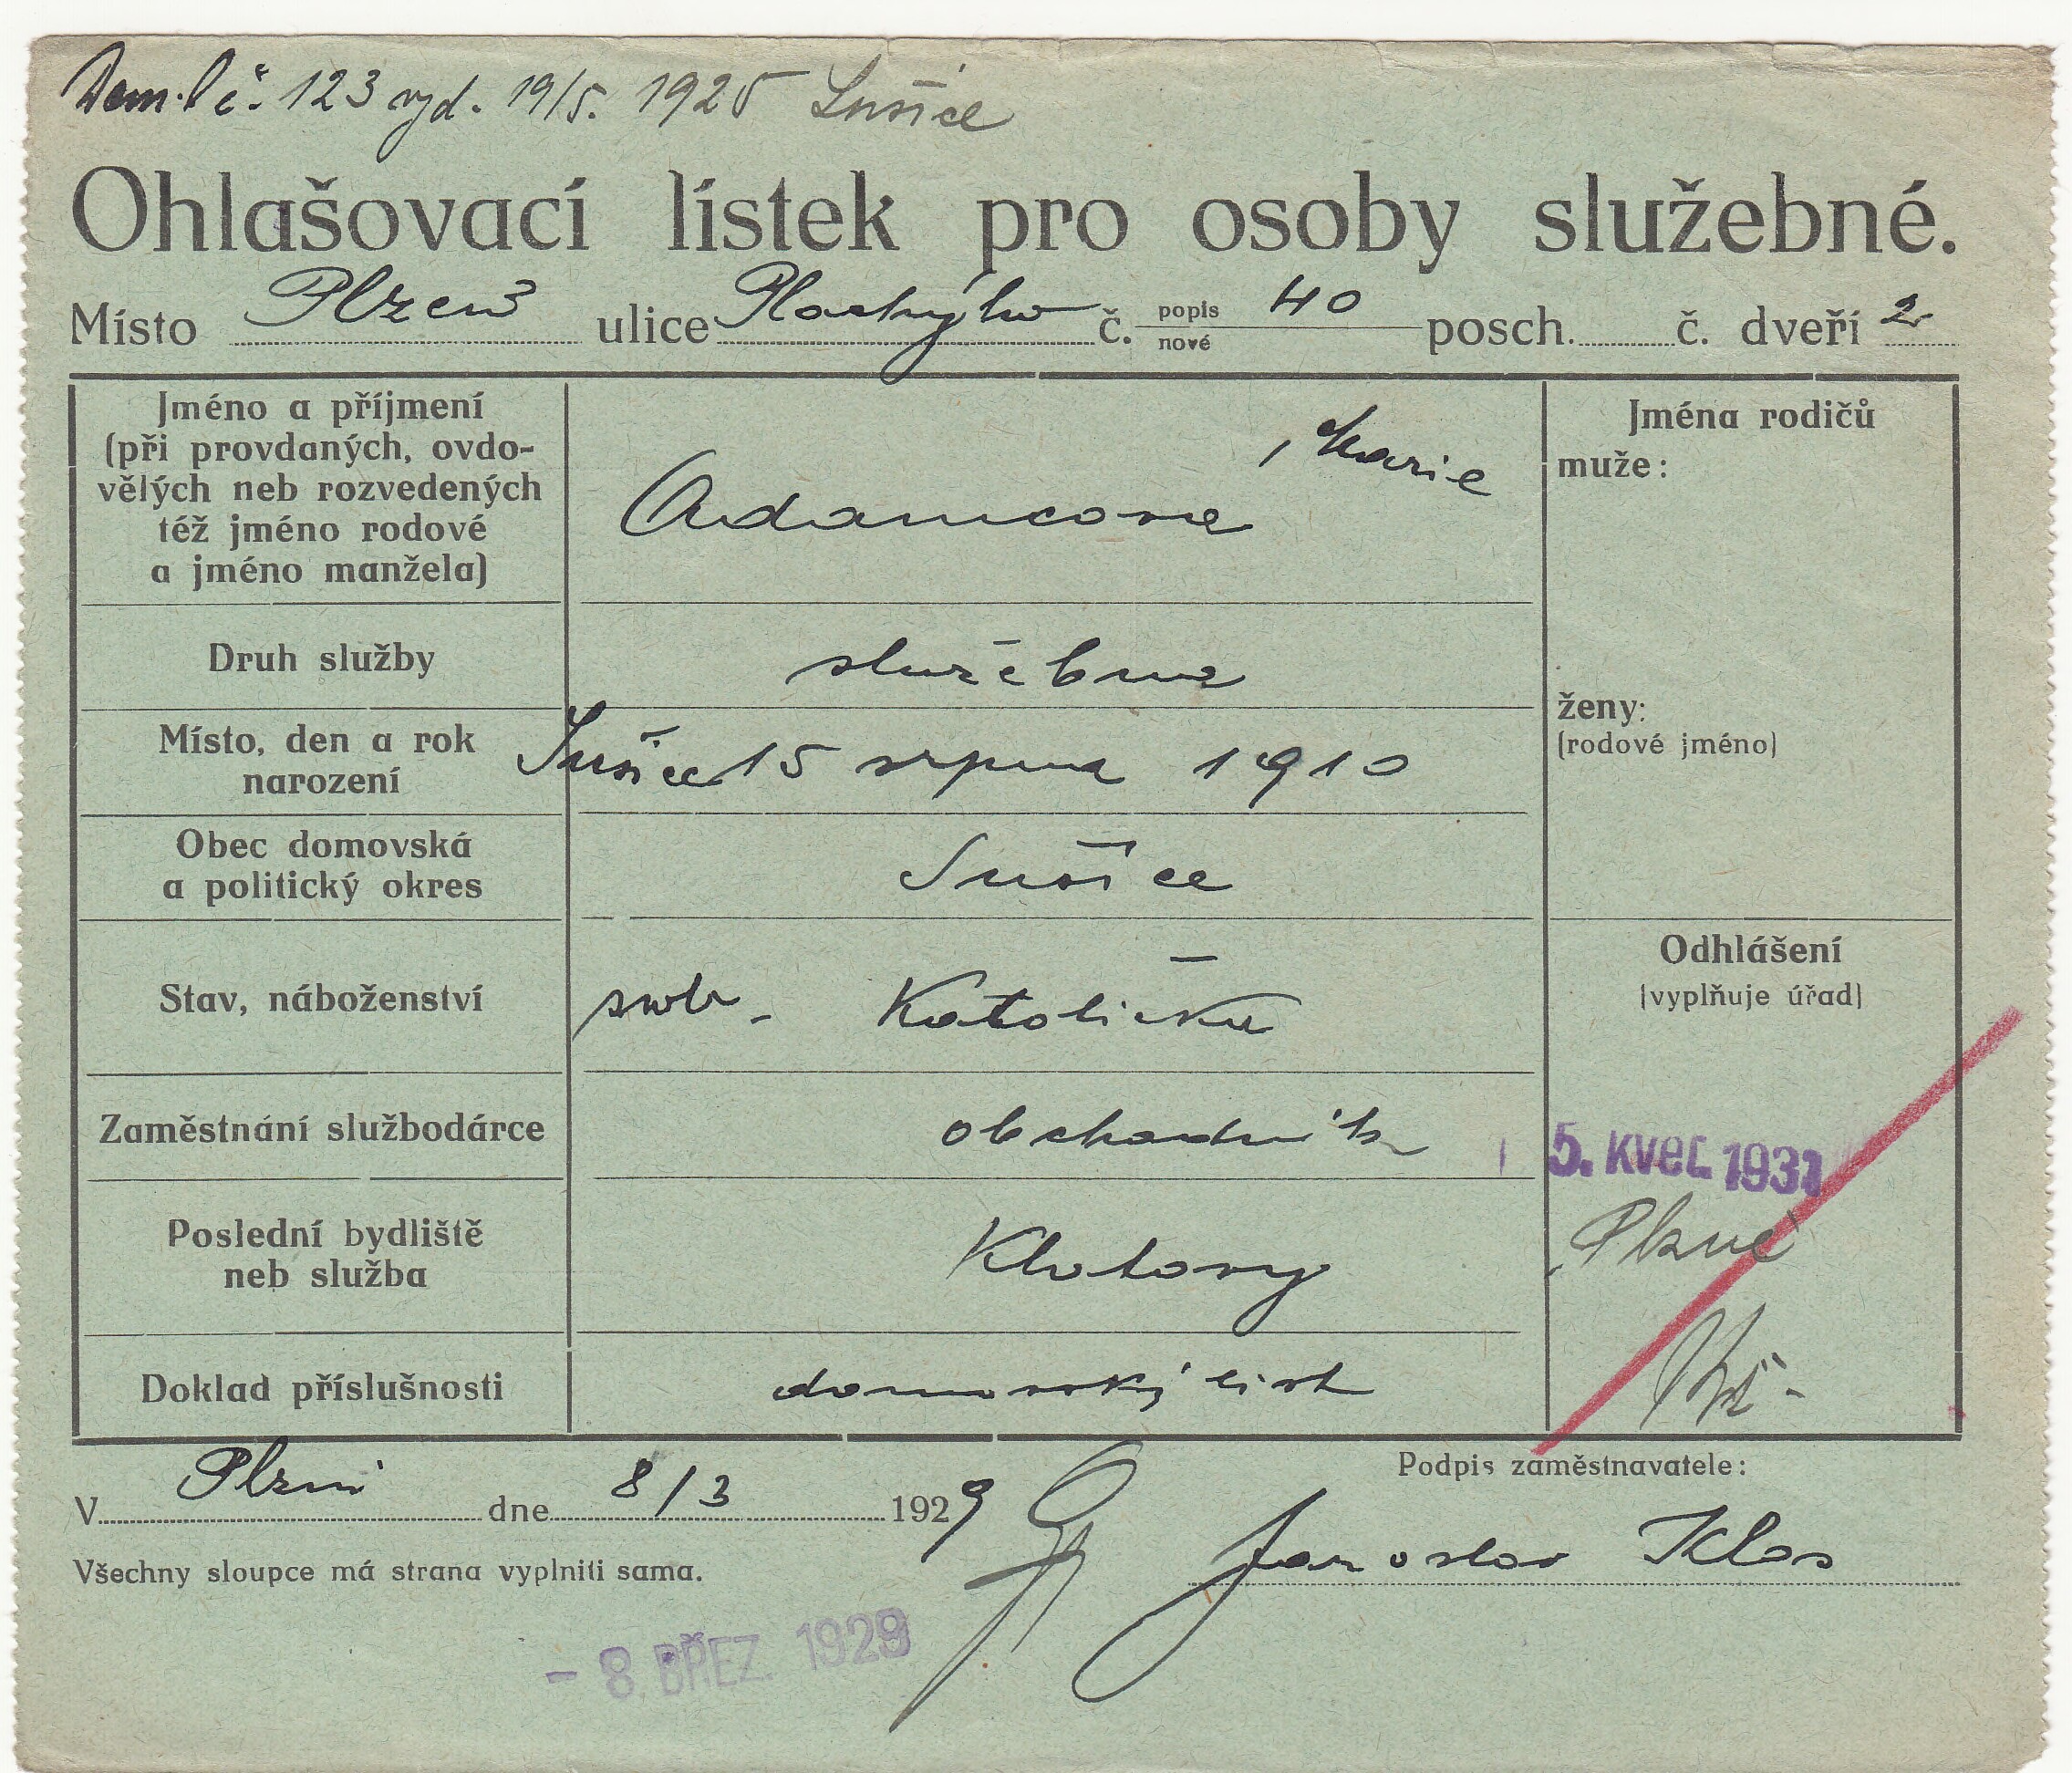 Dom. l č. 123 vyd. 19/5. 1925 Sušice
Ohlašovací lístek pro osoby služebné.
Místo Plzeň ulice Plachýho č. popis 40 nové posch. č. dveří 2
Jméno a příjmení
(při provdaných, ovdo-
vělých neb rozvedených
též jméno rodové
a jméno manžela)
Adamcova, Marie
Jména rodičů
muže:
ženy:
(rodové jméno)
Druh služby
služebna
Místo, den a rok
narození
Sušice 15 srpna 1910
Obec domovská
a politický okres
Sušice
Stav, náboženství
svob. Katolička
Odhlášení
(vyplňuje úřad)
5. KVĚT. 1931
Zaměstnání službodárce
obchodník
Poslední bydliště
neb služba
Klatovy
Doklad příslušnosti
domovský list
V Plzni dne 8/3 1929
Podpis zaměstnavatele:
Jaroslav Klas
Všechny sloupce má strana vyplniti sama.
- 8. BŘEZ. 1929